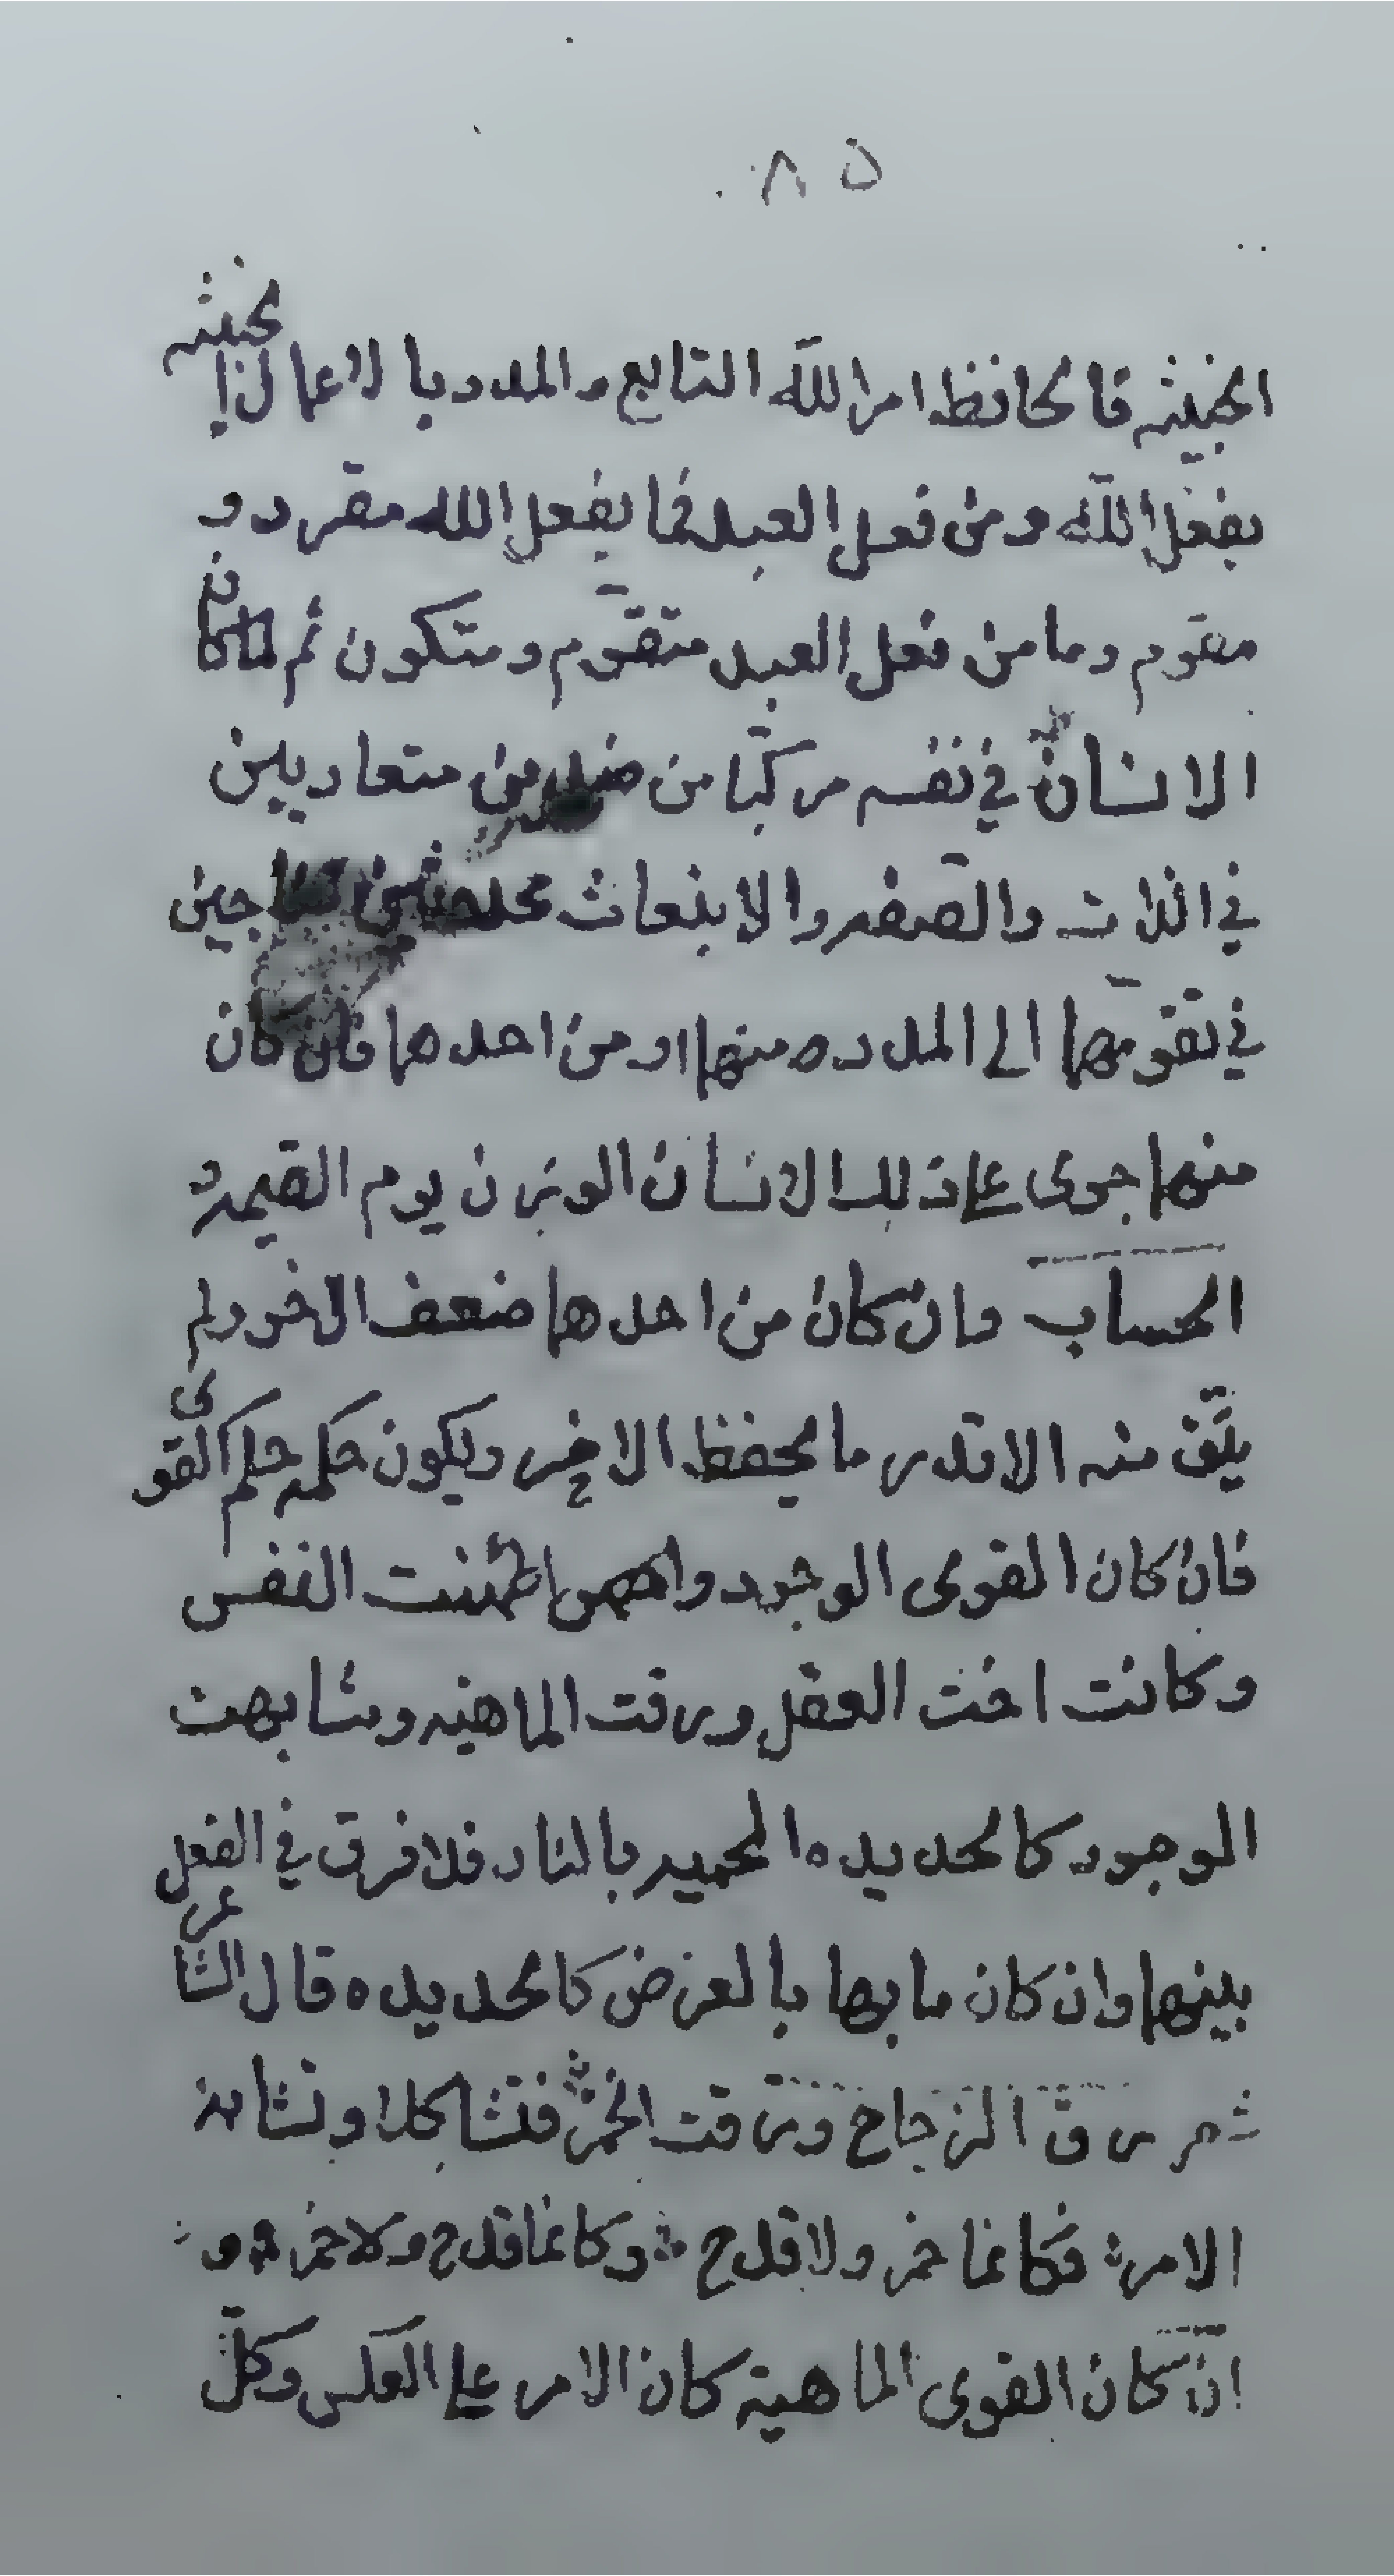 ٨٥
الخبيثه فالحافظ امر الله التابع والمدد بالاعمال الخبيثه
بفعل الله ومن فعل العبد فما بفعل الله مقرر و
مقوم وما من فعل العبد متقوم ومتكون ثم لما كان
الانسان في نفسه مركّبا من ضدين متعاديين
في الذات والصفه والانبعاث محتاجين
في تقومهما الى المدد ه منهما او من احدهما فان كان
منهما جرى على ذلك الانسان الوزن يوم القيمه و
الحساب وان كان من احدهما ضعف الاخر ولم
يبّق منه الا قدر ما يحفظ الاخر ويكون حكمه حكم القوى
فان كان القوى الوجود اطمئنت النفس
وكانت اخت العقل ورقت الماهيه وشابهت
الوجود كالحديده المحميه بالنار فلا فرق في الفعل
بينهما وان كان ما بها بالعرض كالحديده قال الشاعر
شعر رق الزجاج ورقت الخمر فتشاكلا وتشابه
الامر فكانما خمر ولا قدح وكانما قدح ولا خمر و
ان كان القوى الماهية كان الامر على العكس وكلّ